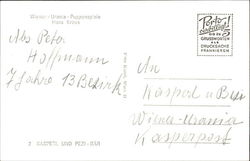 Wiener Urania-Puppenspiele
Hans Kraus
Abs Peter
Hoffmann
7 Jahre 13 Bezirk
Porto
bis zu 5
GRUSSWORTEN
ALS
DRUCKSACHE
FRANKIEREN
An
Kasperl u
Wiener-Urania
Kasperpost
2 KASPERL UND PEZI-BÄR